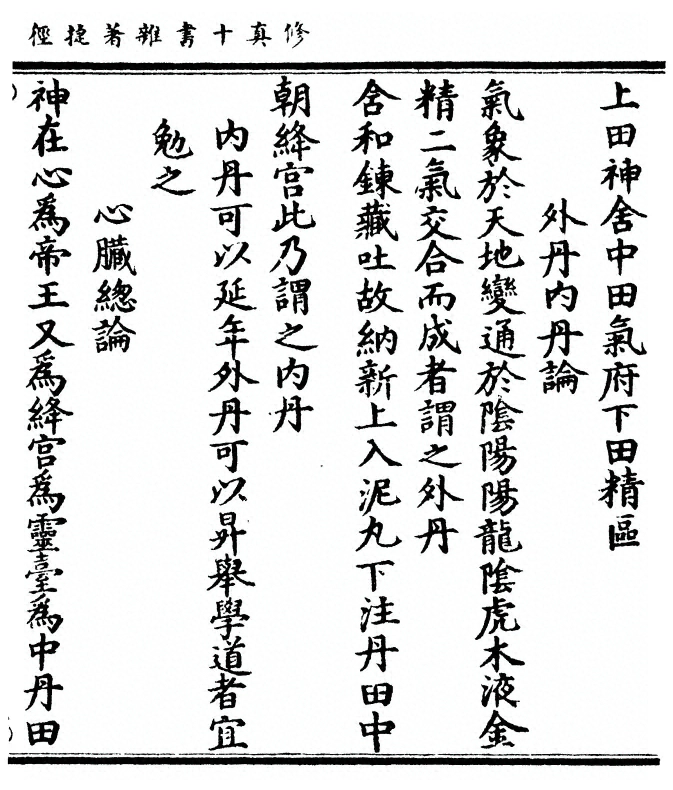 修真十書雜著捷徑
上田神舍中田氣府下田精區
外丹内丹論
氣象於天地變通於陰陽陽龍陰虎木液金
精二氣交合而成者謂之外丹
含和鍊藏吐故納新上入泥丸下注丹田中
朝絳宮此乃謂之内丹
内丹可以延年外丹可以昇舉學道者宜
勉之
心臟總論
神在心爲帝王又爲絳宮爲靈臺爲中丹田